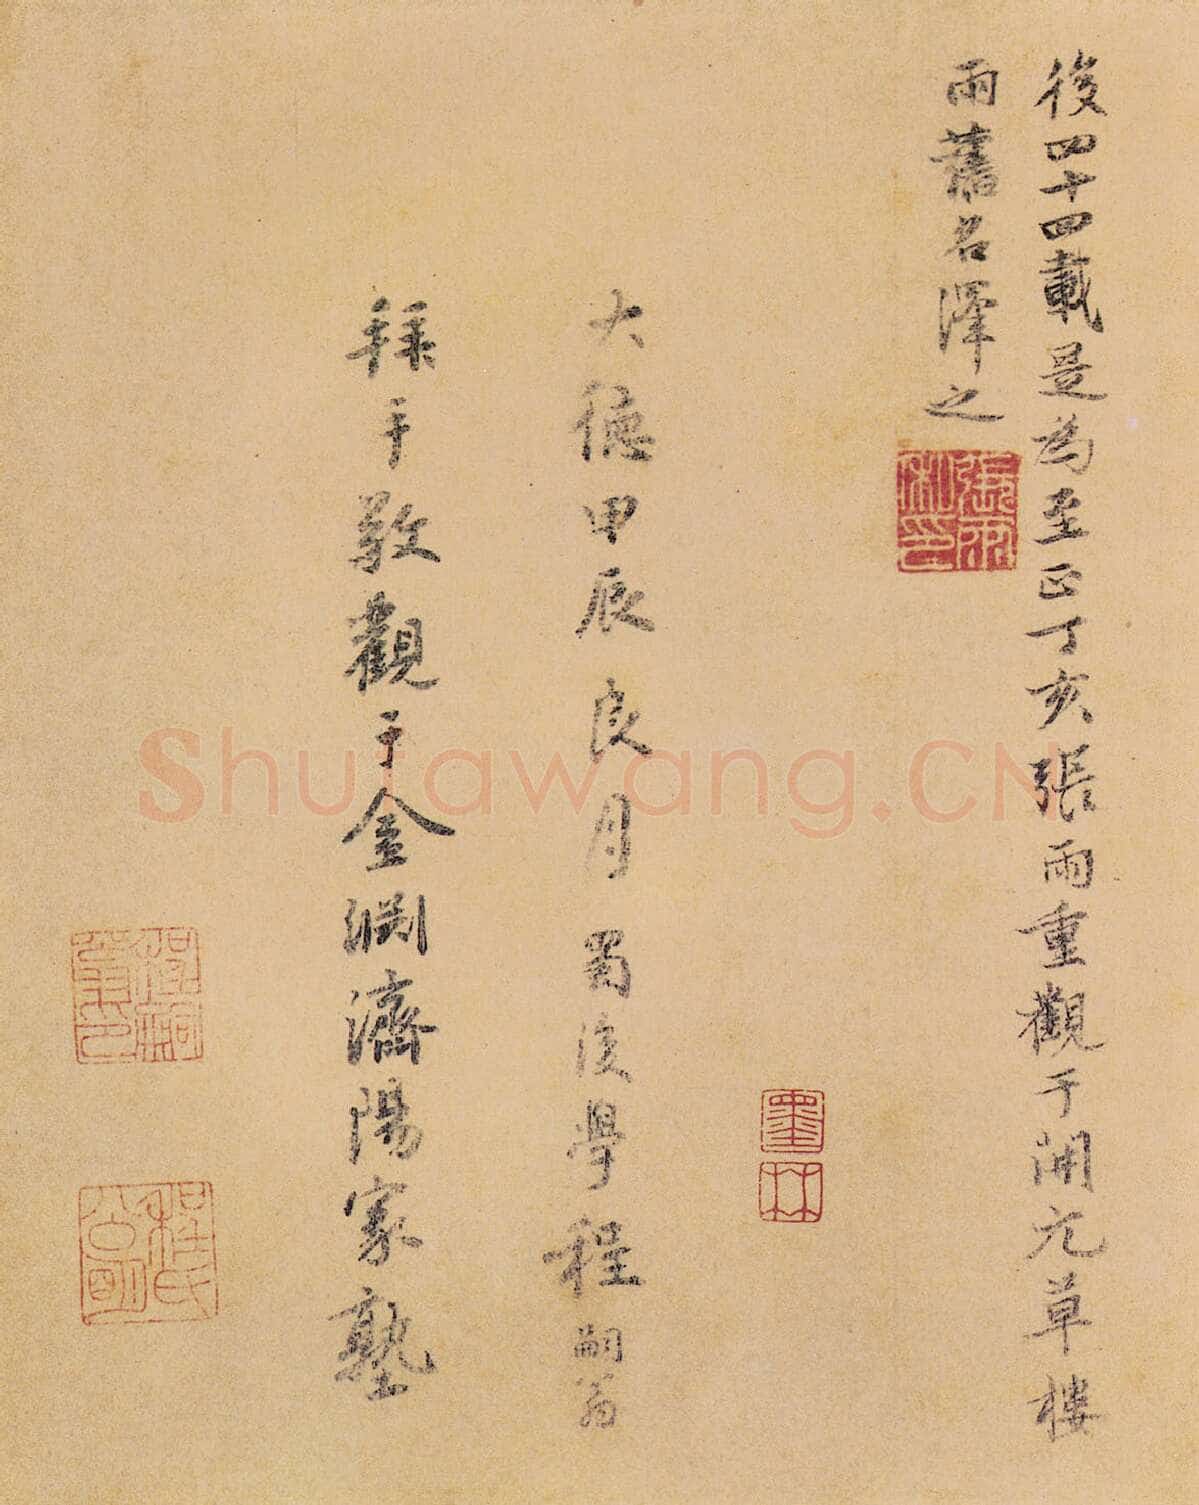 後四十四載是為至正丁亥張雨重觀于開元草樓
雨舊名澤之
張雨私印
墨林
大德甲辰良月蜀後學程嗣翁
拜手敬觀于金淵濟陽家塾
程氏公明
Shufawang.CN